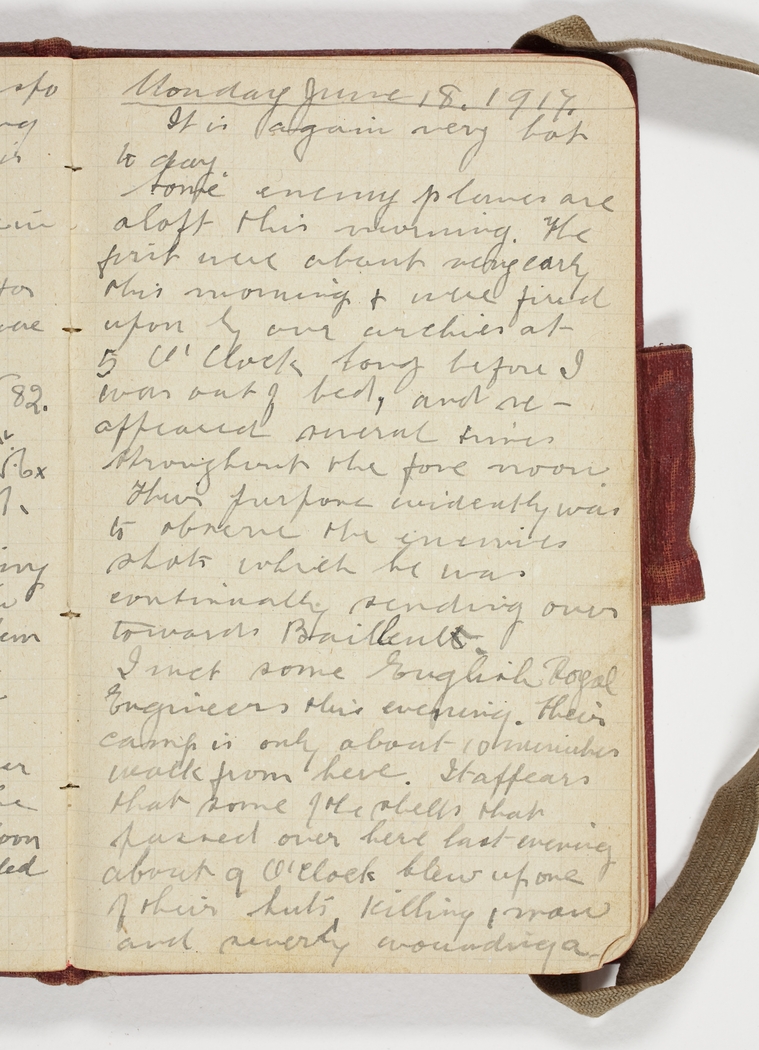 spo
ng
is
in
tos
were
82.
6x
ing
lem
er
he
oon
led
Monday June 18. 1917.
It is again very hot
to day
Some enemy planes are
aloft this morning. The
first were about very early
this morning & were fired
upon by our archies at
5 O'Clock long before I
was out of bed, and re-
appeared several times
throughout the fore noon
Their purpose evidently was
to observe the enemies
shots which he was
continually sending over
towards Bailleul.
I met some English Royal
Engineers this evening. Their
camp is only about 10 minutes
walk from here. It appears
that some of the shells that
passed over here last evening
about 9 O'Clock blew up one
of their huts, killing 1 man
and severly wounding a